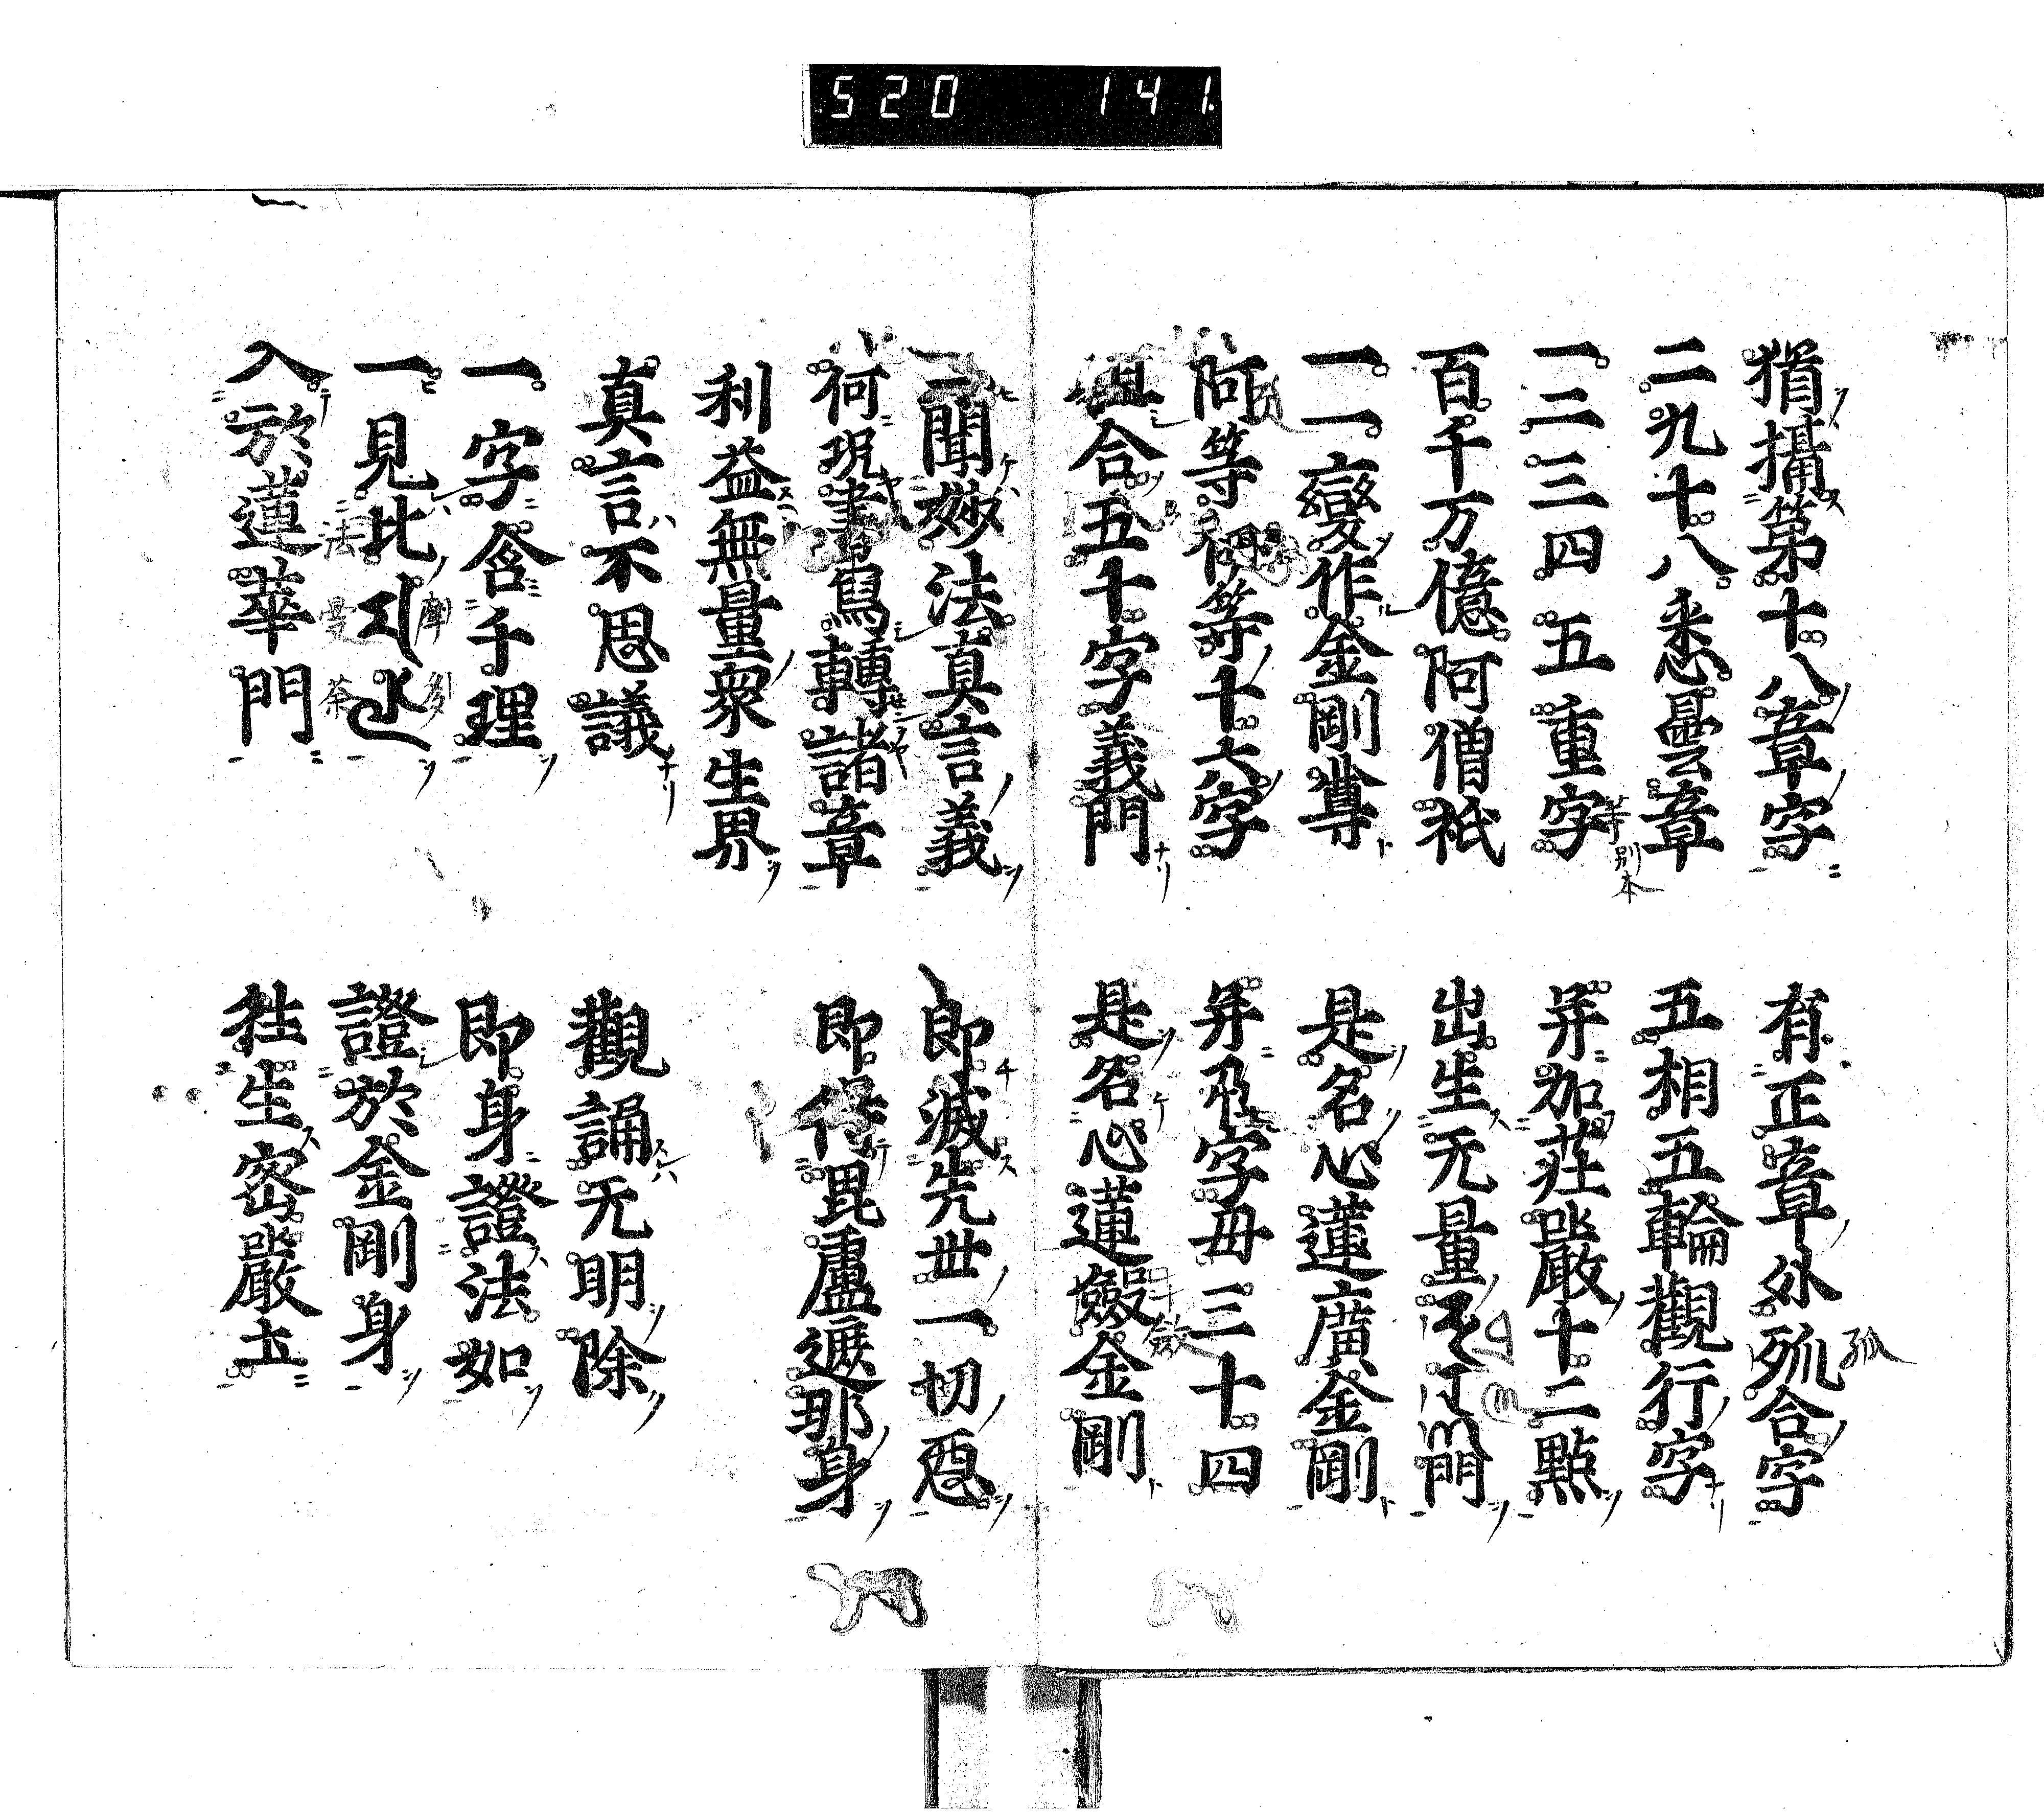 520 141
猶攝第十八章字 有正章外孤合字 孤
二九十八悉曇章 五相五輪觀行字
一二三四五重字 等別本 并加莊嚴十二點
百千万億阿僧祇 出生无量門
一一變作金剛尊 是名心蓮廣金剛
阿等何等十六字 并及字母三十四
且合五十字義門 是名心蓮斂金剛
一聞妙法真言義 即滅先世一切惡
何況書寫轉諸章 即得毘盧遮那身
利益無量衆生界
真言不思議 觀誦无明除
一字含千理 即身證法如
一見此 法曼荼 證於金剛身
入於蓮華門 往生密嚴土